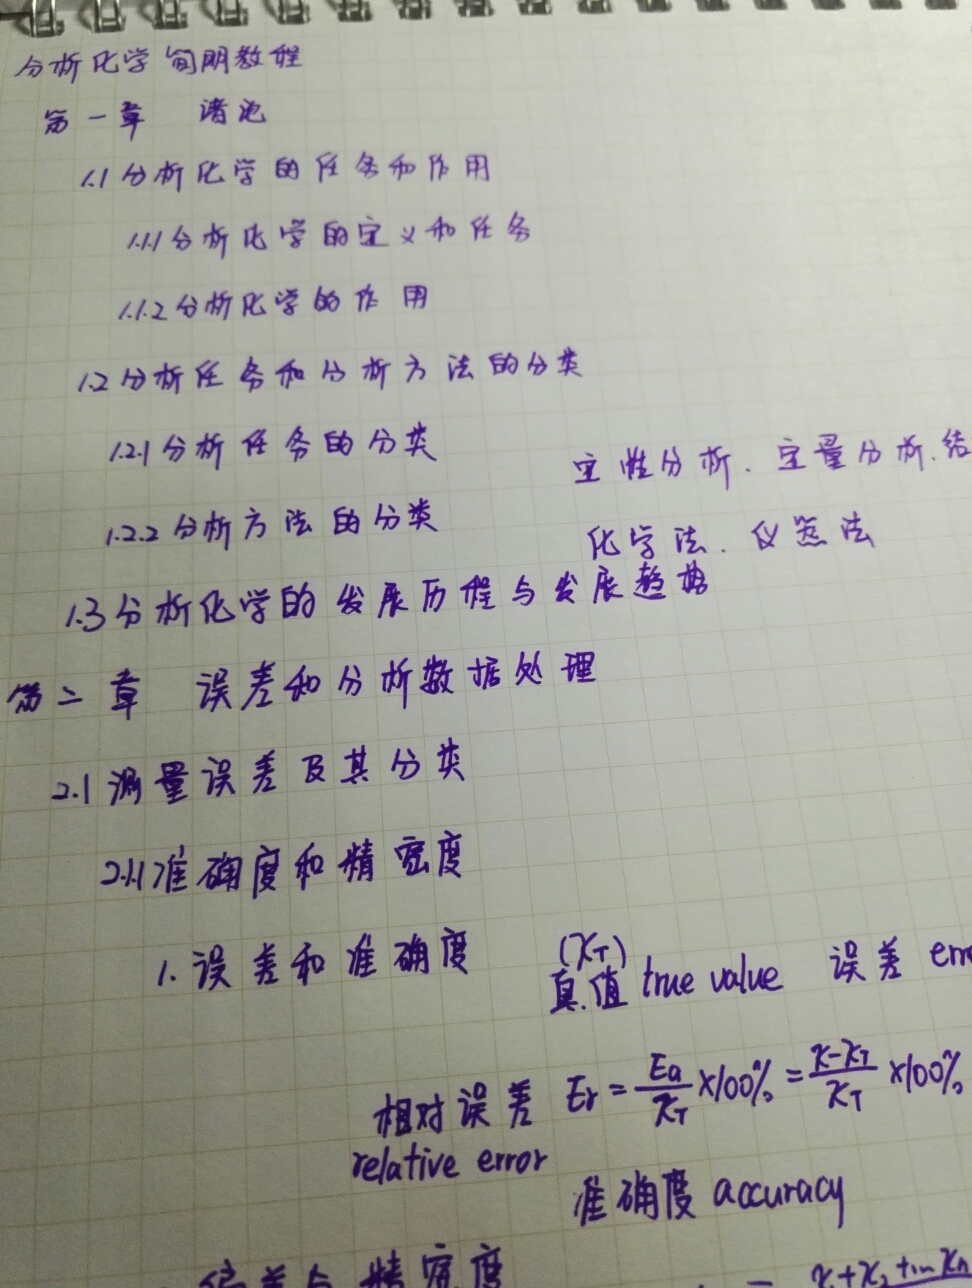 分析化学简明教程
第一章 绪论
1.1 分析化学的任务和作用
1.1.1 分析化学的定义和任务
1.1.2 分析化学的作用
1.2 分析任务和分析方法的分类
1.2.1 分析任务的分类 定性分析、定量分析、结
1.2.2 分析方法的分类 化学法、仪器法
1.3 分析化学的发展历程与发展趋势
第二章 误差和分析数据处理
2.1 测量误差及其分类
2.1.1 准确度和精密度
1. 误差和准确度 (x_T) 真值 true value 误差
相对误差 Er = Ea/x_T ×100% = (x-x_T)/x_T ×100%
relative error
准确度 accuracy
偏差与精密度